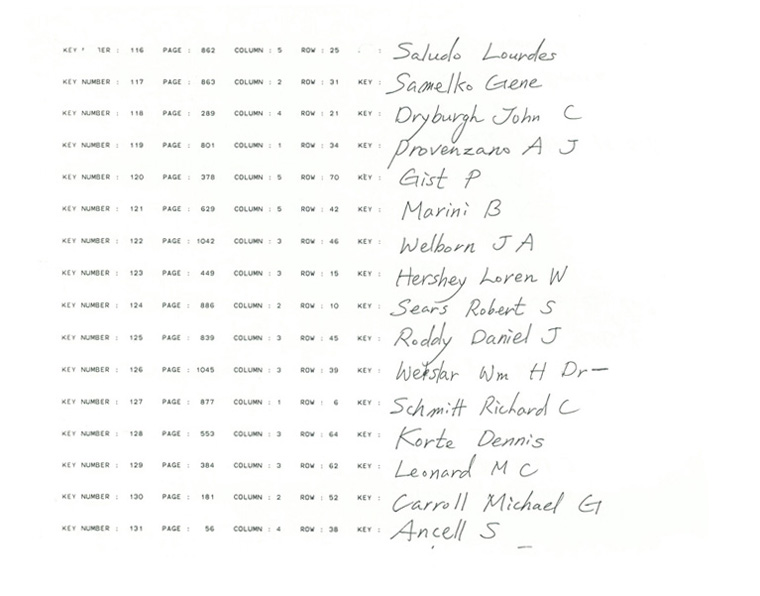 KEY TER : 116 PAGE : 862 COLUMN : 5 ROW : 25 : Saludo Lourdes
KEY NUMBER : 117 PAGE : 863 COLUMN : 2 ROW : 31 KEY : Samelko Gene
KEY NUMBER : 118 PAGE : 289 COLUMN : 4 ROW : 21 KEY : Dryburgh John C
KEY NUMBER : 119 PAGE : 801 COLUMN : 1 ROW : 34 KEY : Provenzano A J
KEY NUMBER : 120 PAGE : 378 COLUMN : 5 ROW : 70 KEY : Gist P
KEY NUMBER : 121 PAGE : 629 COLUMN : 5 ROW : 42 KEY : Marini B
KEY NUMBER : 122 PAGE : 1042 COLUMN : 3 ROW : 46 KEY : Welborn J A
KEY NUMBER : 123 PAGE : 449 COLUMN : 3 ROW : 15 KEY : Hershey Loren W
KEY NUMBER : 124 PAGE : 886 COLUMN : 2 ROW : 10 KEY : Sears Robert S
KEY NUMBER : 125 PAGE : 839 COLUMN : 3 ROW : 45 KEY : Roddy Daniel J
KEY NUMBER : 126 PAGE : 1045 COLUMN : 3 ROW : 39 KEY : Wm H Dr-
KEY NUMBER : 127 PAGE : 877 COLUMN : 1 ROW : 6 KEY : Schmitt Richard C
KEY NUMBER : 128 PAGE : 553 COLUMN : 3 ROW : 64 KEY : Korte Dennis
KEY NUMBER : 129 PAGE : 384 COLUMN : 3 ROW : 62 KEY : Leonard M C
KEY NUMBER : 130 PAGE : 181 COLUMN : 2 ROW : 52 KEY : Carroll Michael G
KEY NUMBER : 131 PAGE : 56 COLUMN : 4 ROW : 38 KEY : Ancell S